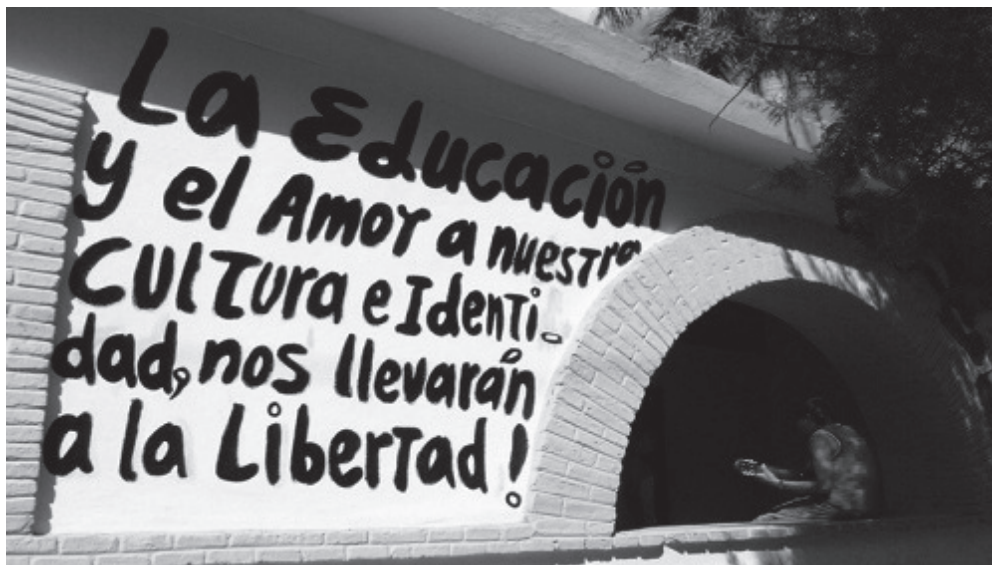 La Educación
y el Amor a nuestra
Cultura e Identi-
dad, nos llevarán
a la Libertad!